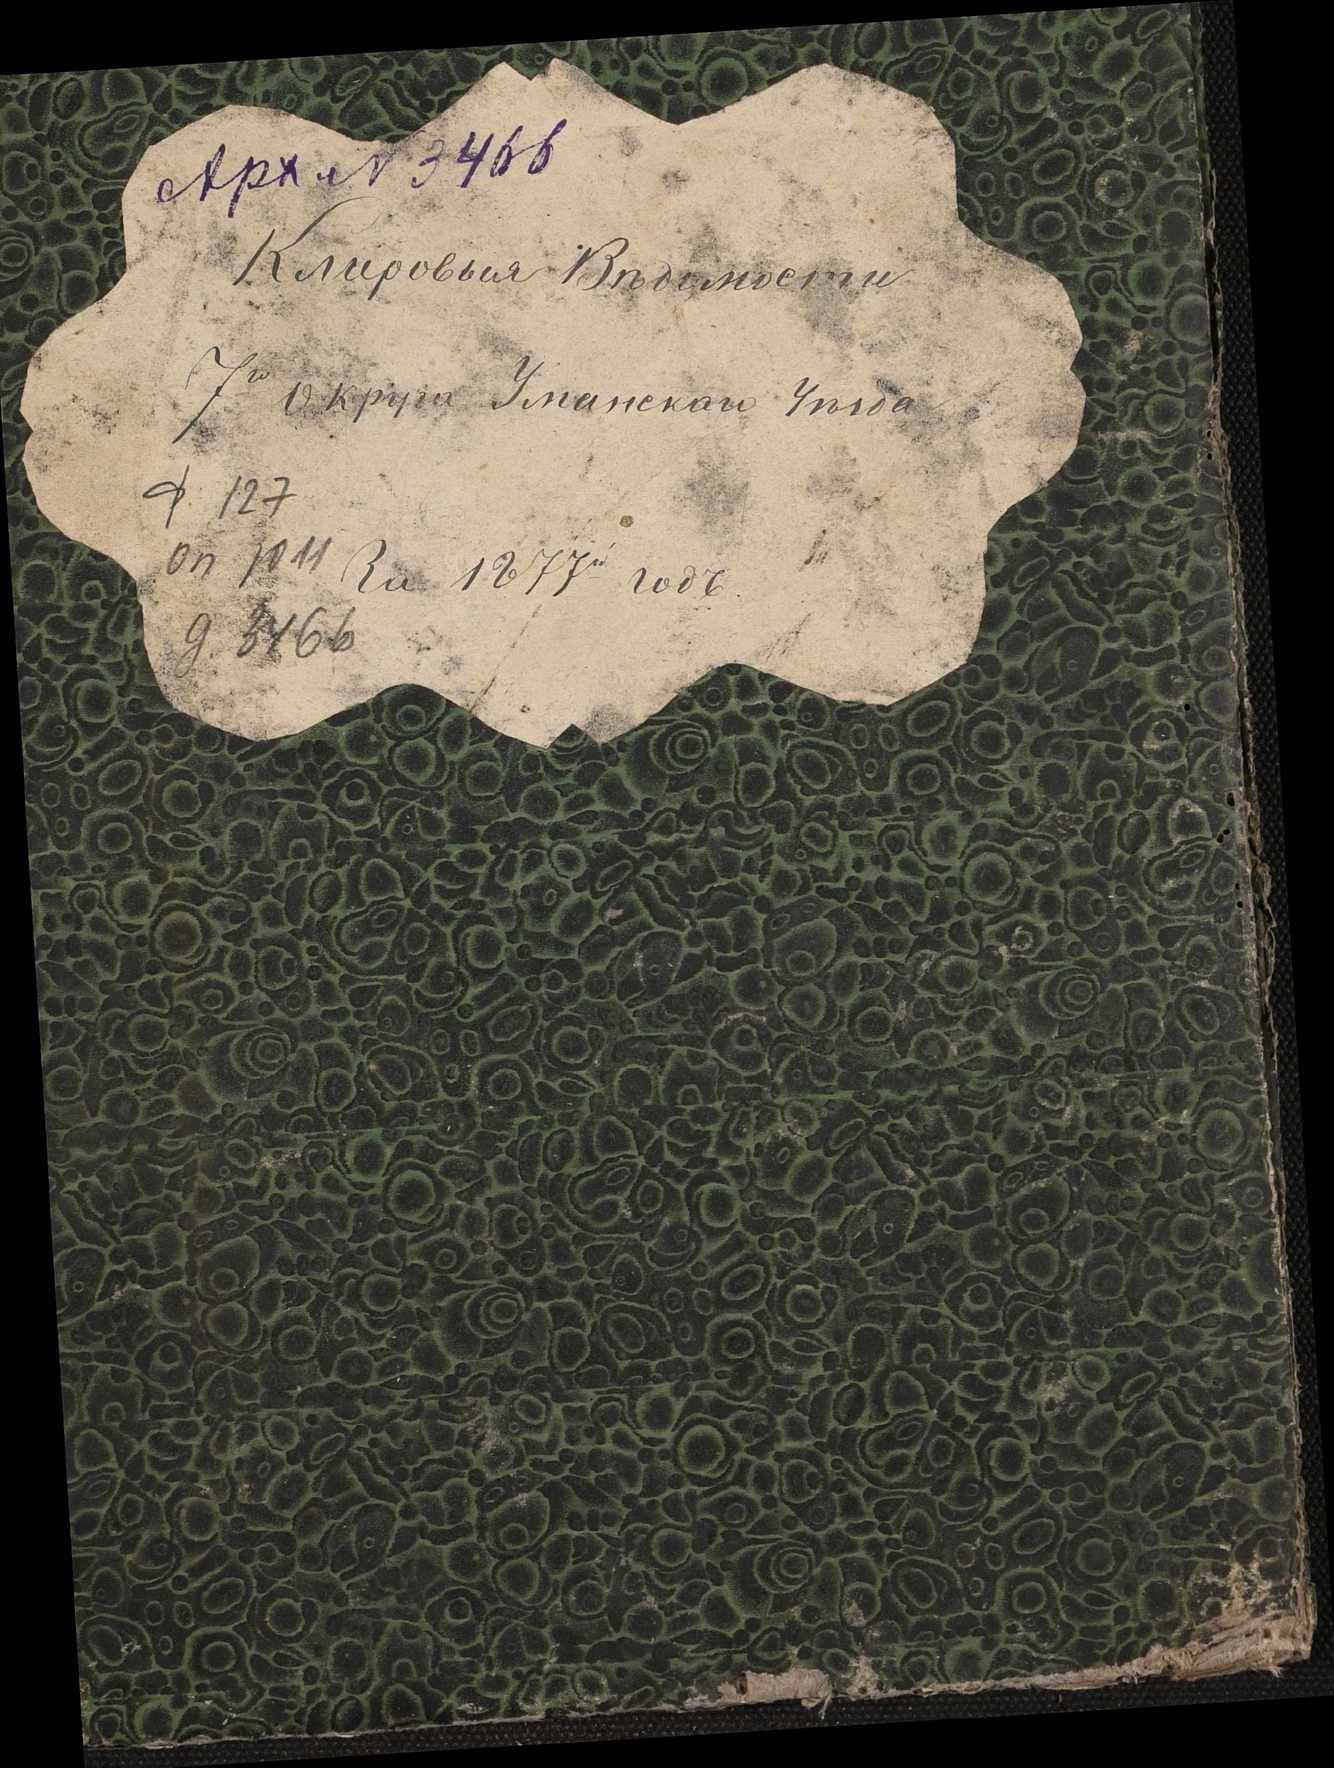 Арх. № 3466
Клировыя Вѣдомости
7го Округа Уманскаго Уѣзда
ф. 127
оп 1011
За 1877й годъ.
д. 3466